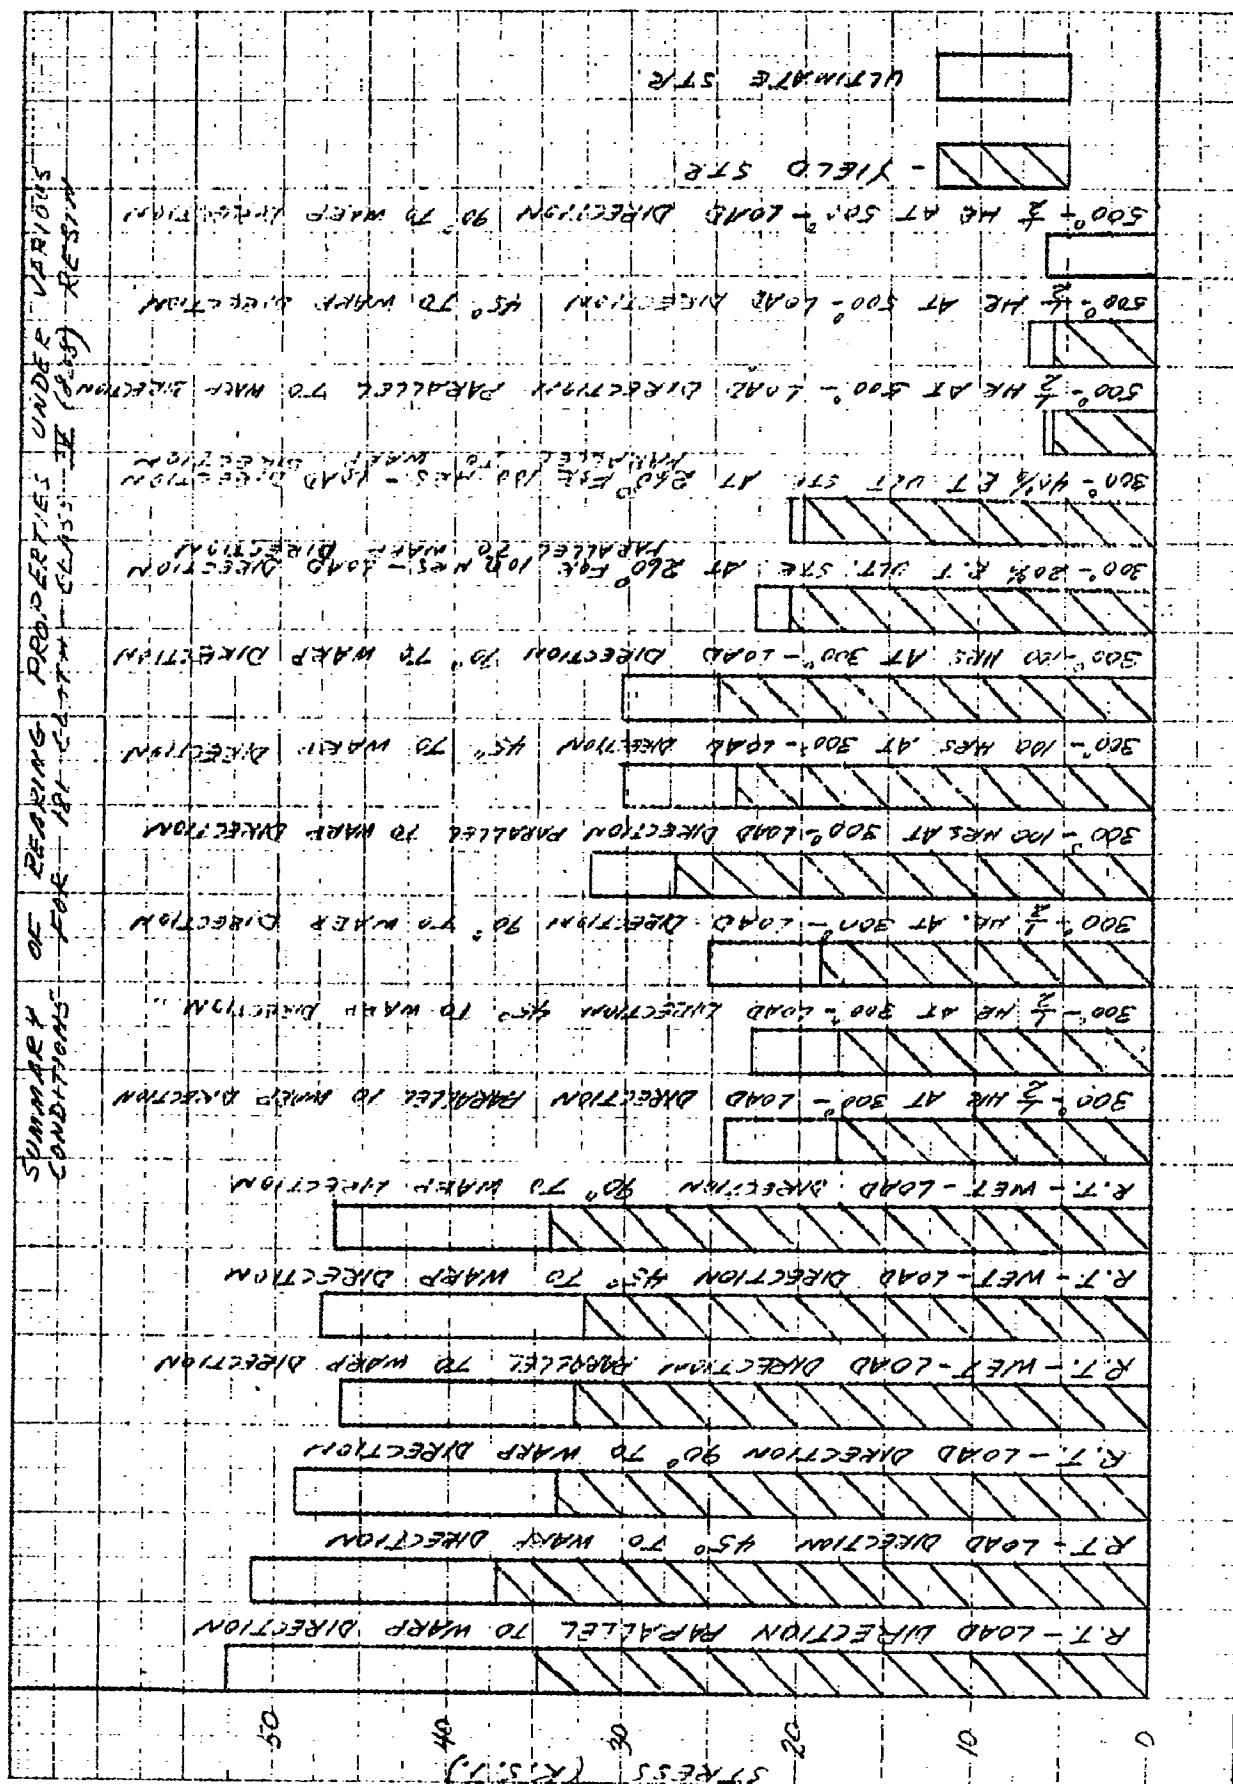 SUMMARY OF BEARING PROPERTIES UNDER VARIOUS
CONDITIONS FOR 181 CLOTH - CLASS IV (8-03) RESIN
STRESS (K.S.I.)
0 10 20 30 40 50
R.T. - LOAD DIRECTION PARALLEL TO WARP DIRECTION
R.T. - LOAD DIRECTION 45° TO WARP DIRECTION
R.T. - LOAD DIRECTION 90° TO WARP DIRECTION
R.T. - WET - LOAD DIRECTION PARALLEL TO WARP DIRECTION
R.T. - WET - LOAD DIRECTION 45° TO WARP DIRECTION
R.T. - WET - LOAD DIRECTION 90° TO WARP DIRECTION
300° - 1/2 HR AT 300° - LOAD DIRECTION PARALLEL TO WARP DIRECTION
300° - 1/2 HR AT 300° - LOAD DIRECTION 45° TO WARP DIRECTION
300° - 1/2 HR. AT 300° - LOAD DIRECTION 90° TO WARP DIRECTION
300° - 100 HRS AT 300° - LOAD DIRECTION PARALLEL TO WARP DIRECTION
300° - 100 HRS AT 300° - LOAD DIRECTION 45° TO WARP DIRECTION
300° - 100 HRS AT 300° - LOAD DIRECTION 90° TO WARP DIRECTION
300° - 20% R.T. ULT. STR. AT 260° FOR 100 HRS - LOAD DIRECTION
PARALLEL TO WARP DIRECTION
300° - 40% R.T. ULT STR. AT 260° FOR 100 HRS - LOAD DIRECTION
PARALLEL TO WARP DIRECTION
500° - 1/2 HR AT 500° - LOAD DIRECTION PARALLEL TO WARP DIRECTION
500° - 1/2 HR AT 500° - LOAD DIRECTION 45° TO WARP DIRECTION
500° - 1/2 HR AT 500° - LOAD DIRECTION 90° TO WARP DIRECTION
- YIELD STR
ULTIMATE STR